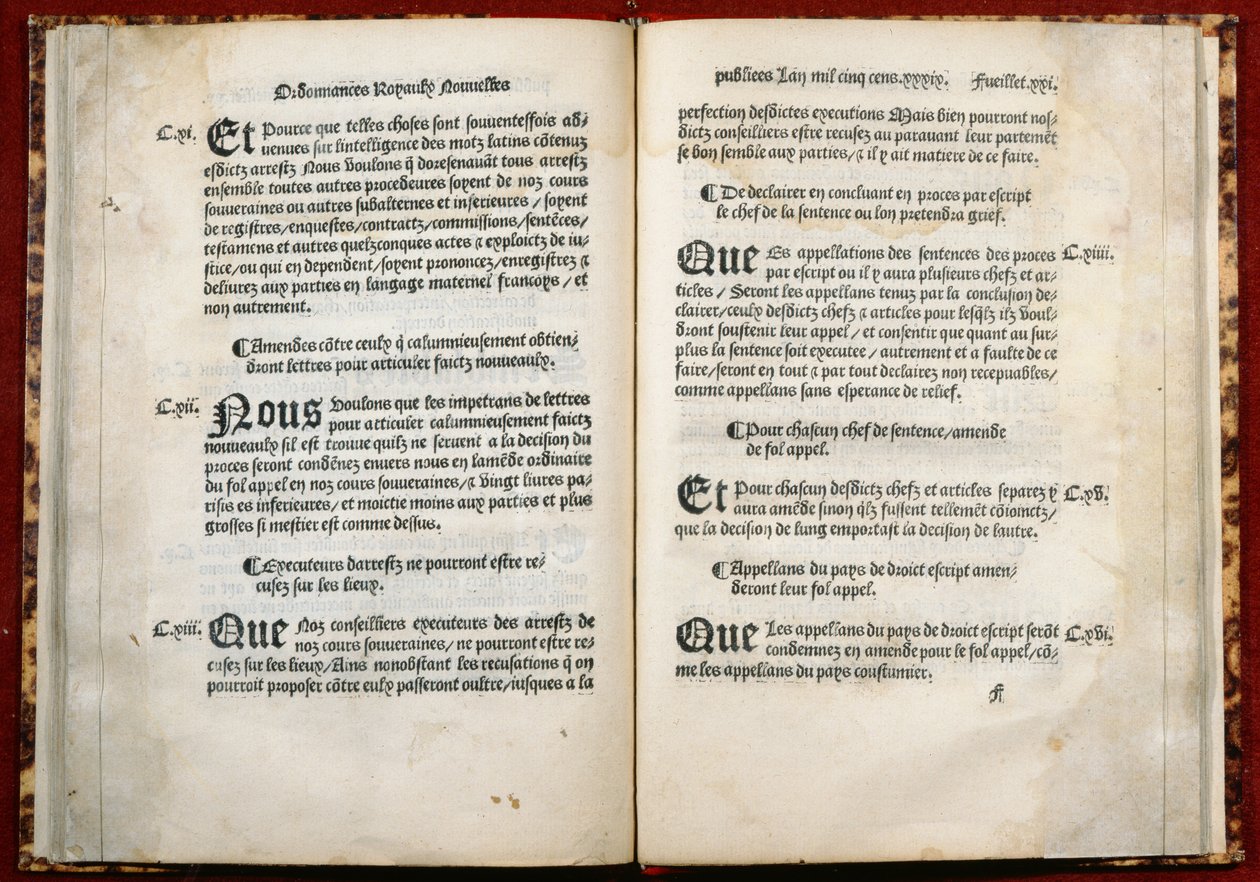 Ordonnances Royaulx Nouvelles
C.xi. Et Pource que telles choses sont souuentesfois ad-
uenues sur lintelligence des motz latins cõtenuz
esdictz arrestz Nous voulons q̃ doresenauãt tous arrestz
ensemble toutes autres procedeures soyent de noz cours
souueraines ou autres subalternes et inferieures / soyent
de registres/enquestes/contractz/commissions/sentẽces/
testamens et autres quelzconques actes & exploictz de iu-
stice/ou qui en dependent/soyent prononcez/enregistrez &
deliurez aux parties en langage maternel francoys / et
non autrement.
¶Amendes cõtre ceulx q̃ calumnieusement obtien-
dront lettres pour articuler faictz nouueaulx.
C.xii. Nous Voulons que les impetrans de lettres
pour articuler calumnieusement faictz
nouueaulx sil est trouue quilz ne seruent a la decision du
proces seront condẽnez enuers nous en lamẽde ordinaire
du fol appel en noz cours souueraines/& vingt liures pa-
risis es inferieures/ et moictie moins aux parties et plus
grosses si mestier est comme dessus.
¶Executeurs darrestz ne pourront estre re-
cusez sur les lieux.
C.xiii. Que Noz conseilliers executeurs des arrestz de
noz cours souueraines/ ne pourront estre re-
cusez sur les lieux/Ains nonobstant les recusations q̃ on
pourroit proposer cõtre eulx passeront oultre/iusques a la
publiees Lan mil cinq cens.xxxix. Fueillet.xxi.
perfection desdictes executions Mais bien pourront nos-
dictz conseilliers estre recusez au parauant leur partemẽt
se bon semble aux parties/& il y ait matiere de ce faire.
¶De declairer en concluant en proces par escript
le chef de la sentence ou lon pretendra grief.
Que Es appellations des sentences des proces C.xiiii.
par escript ou il y aura plusieurs chefz et ar-
ticles / Seront les appellans tenuz par la conclusion de-
clairer/ceulx desdictz chefz & articles pour lesq̃lz ilz voul-
dront soustenir leur appel/ et consentir que quant au sur-
plus la sentence soit executee/ autrement et a faulte de ce
faire/seront en tout & par tout declairez non recepuables/
comme appellans sans esperance de relief.
¶Pour chascun chef de sentence/amende
de fol appel.
Et Pour chascun desdictz chefz et articles separez y C.xv.
aura amẽde sinon q̃lz fussent tellemẽt cõioinctz/
que la decision de lung emportast la decision de lautre.
¶Appellans du pays de droict escript amen-
deront leur fol appel.
Que Les appellans du pays de droict escript serõt C.xvi.
condemnez en amende pour le fol appel/cõ-
me les appellans du pays coustumier.
F